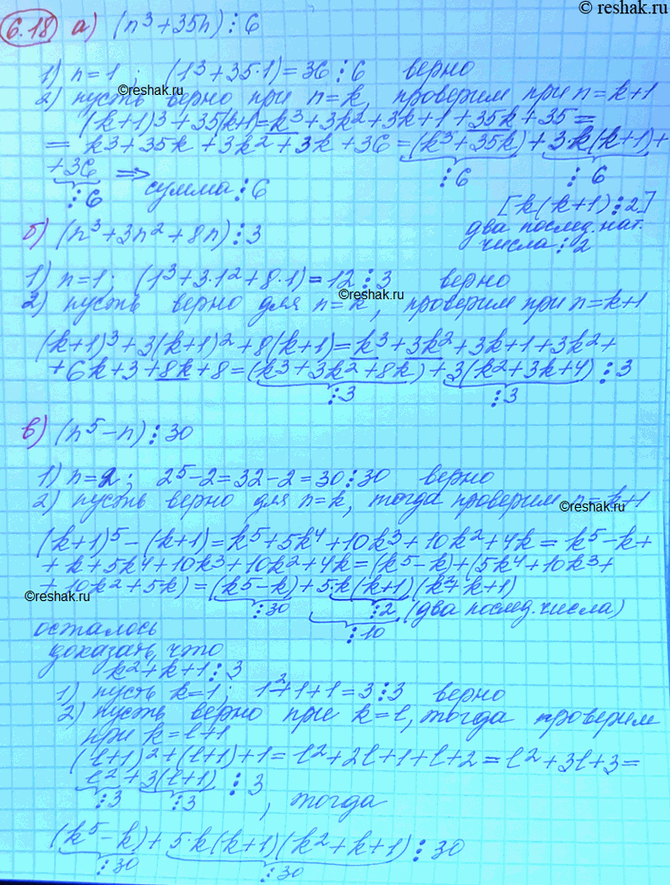 © reshak.ru
6.18 а) (n³+35n)⋮6
1) n=1; (1³+35·1)=36⋮6 верно
©reshak.ru
2) пусть верно при n=k, проверим при n=k+1
(k+1)³+35(k+1)=k³+3k²+3k+1+35k+35=
= k³+35k+3k²+3k+36=(k³+35k)+3k(k+1)+
+36 ⟹ сумма⋮6 ⋮6 ⋮6
⋮6
[k(k+1)⋮2]
два послед. нат.
числа⋮2
б) (n³+3n²+8n)⋮3
1) n=1; (1³+3·1²+8·1)=12⋮3 верно
©reshak.ru
2) пусть верно для n=k, проверим при n=k+1
(k+1)³+3(k+1)²+8(k+1)=k³+3k²+3k+1+3k²+
+6k+3+8k+8=(k³+3k²+8k)+3(k²+3k+4)⋮3
⋮3 ⋮3
в) (n⁵-n)⋮30
1) n=2; 2⁵-2=32-2=30⋮30 верно
2) пусть верно для n=k, тогда проверим n=k+1
©reshak.ru
(k+1)⁵-(k+1)=k⁵+5k⁴+10k³+10k²+4k=k⁵-k+
+k+5k⁴+10k³+10k²+4k=(k⁵-k)+(5k⁴+10k³+
+10k²+5k)=(k⁵-k)+5k(k+1)(k²+k+1)
©reshak.ru
⋮30 ⋮2 (два послед. числа)
⋮10
осталось
доказать, что
k²+k+1⋮3
1) пусть k=1; 1²+1+1=3⋮3 верно
2) пусть верно при k=l, тогда проверим
при k=l+1
(l+1)²+(l+1)+1=l²+2l+1+l+2=l²+3l+3=
l²+3(l+1)⋮3
⋮3 ⋮3 , тогда
(k⁵-k)+5k(k+1)(k²+k+1)⋮30
⋮30 ⋮30